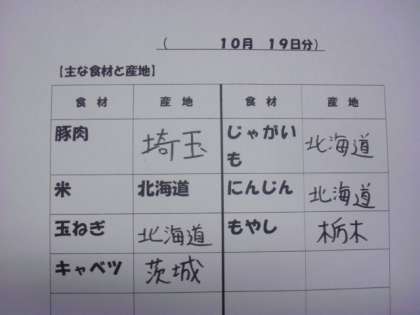 ( 10月 19日分)
【主な食材と産地】
食材 産地 食材 産地
豚肉 埼玉 じゃがいも 北海道
米 北海道 にんじん 北海道
玉ねぎ 北海道 もやし 栃木
キャベツ 茨城